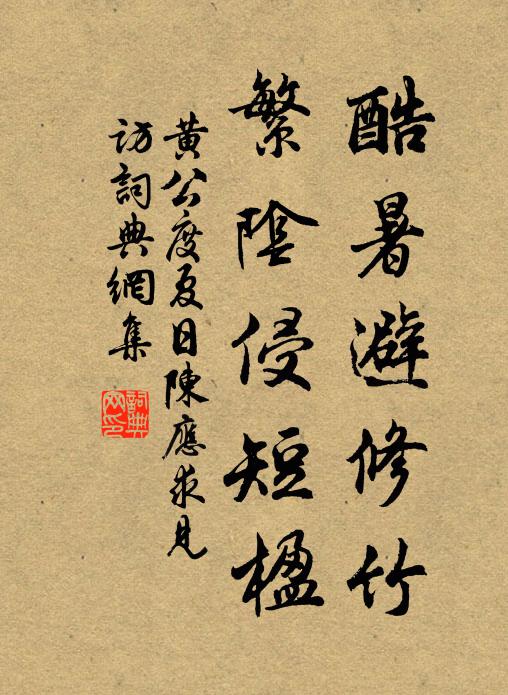 酷暑避修竹
繁陰侵短楹
黃公度夏日陳應求見
訪詞典網集
詞典網印